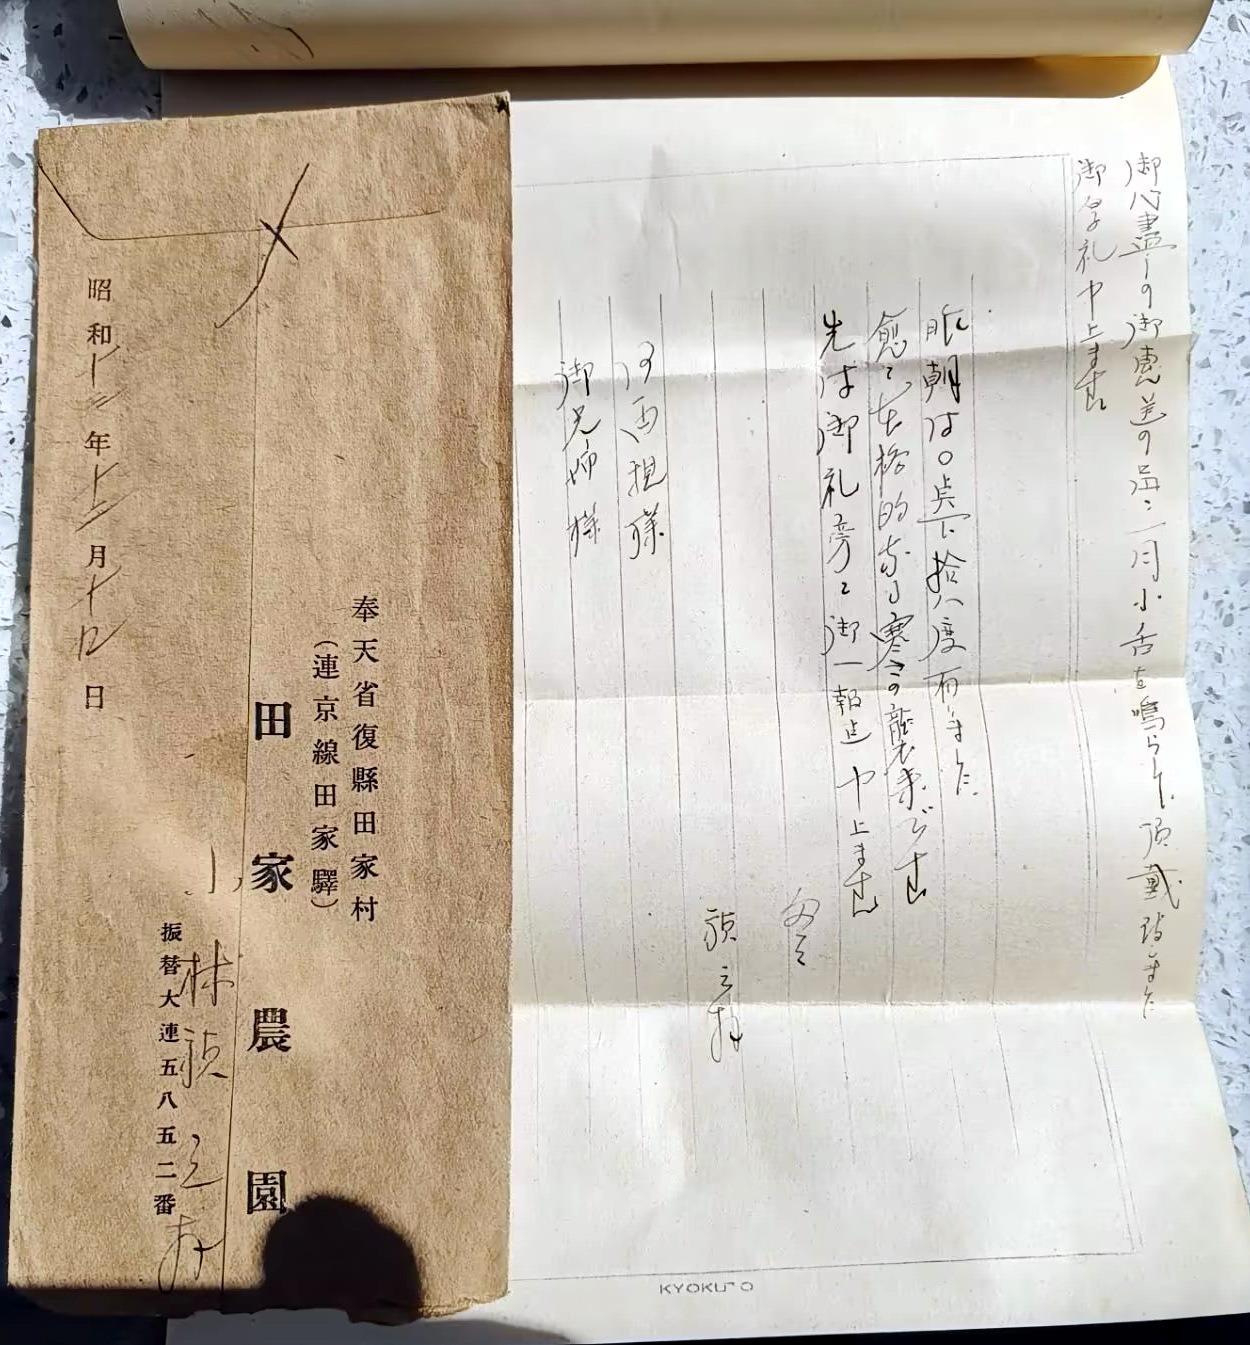 御心盡しの御惠送の品々一同小舌を鳴らして頂戴致ました
御厚礼申上ます
昨朝は〇点下拾八度有ました
愈々本格的な寒さの襲来です
先は御礼旁々御一報迄申上ます
匆々
禎之拝
河西親様
御兄姉様
KYOKUTO
奉天省復縣田家村
(連京線田家驛)
田家農園
小林禎之拝
振替大連五八五二番
昭和十二年十二月十日